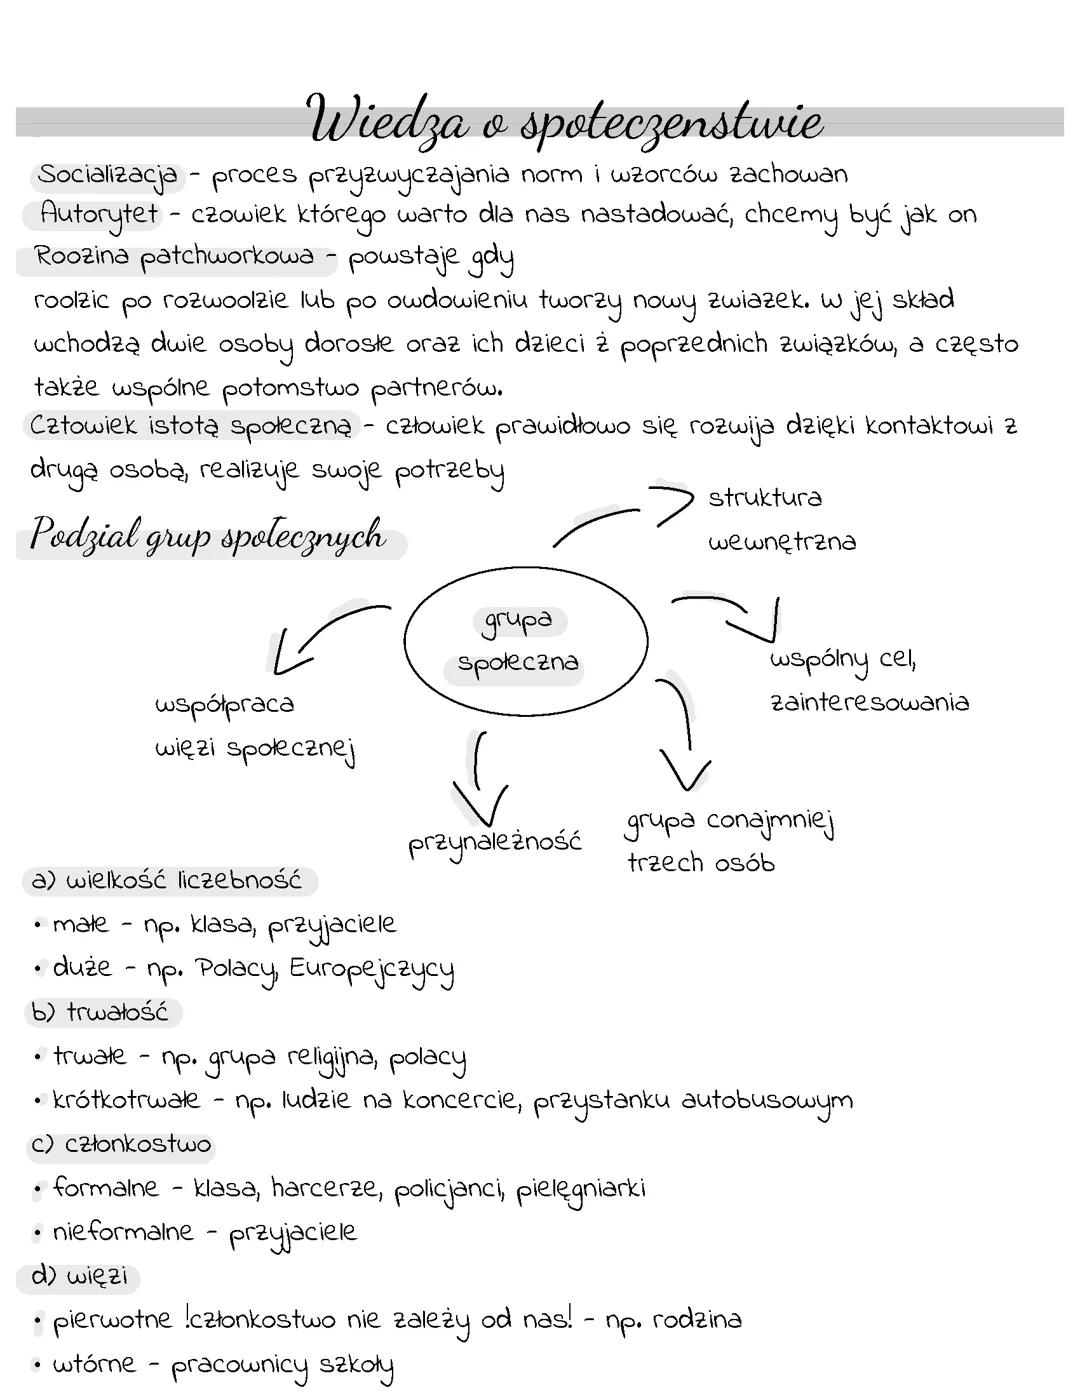 Wiedza o społeczenstwie
Socializacja - proces przyzwyczajania norm i wzorców zachowan
Autorytet - czowiek którego warto dla nas nastadować, chcemy być jak on
Roozina patchworkowa - powstaje gdy
roolzic po rozwoolzie lub po owdowieniu tworzy nowy zwiazek. W jej skład
wchodzą dwie osoby dorosłe oraz ich dzieci ż poprzednich związków, a często
także wspólne potomstwo partnerów.
Cztowiek istotą społeczną - człowiek prawidłowo się rozwija dzięki kontaktowi z
drugą osobą, realizuje swoje potrzeby
struktura
wewnętrzna
Podzial grup społecznych
grupa
społeczna
wspólny cel,
zainteresowania
współpraca
więzi społecznej
przynależność
grupa conajmniej
trzech osób
a) wielkość liczebność
• małe - np. klasa, przyjaciele
• duże - np. Polacy, Europejczycy
b) trwałość
• trwałe - np. grupa religijna, polacy
• krótkotrwałe - np. ludzie na koncercie, przystanku autobusowym
c) członkostwo
• formalne - klasa, harcerze, policjanci, pielęgniarki
• nieformalne - przyjaciele
d) więzi
• pierwotne !członkostwo nie zależy od nas! - np. rodzina
• wtórne - pracownicy szkoły